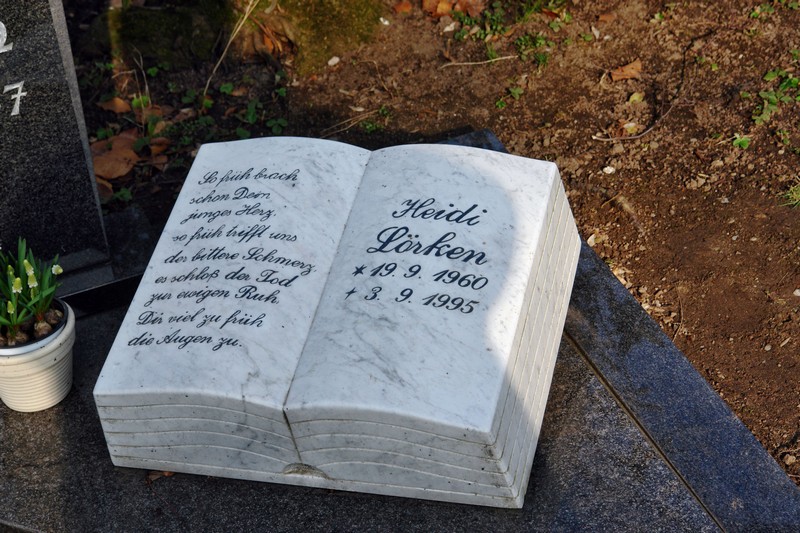 2
7
So früh brach
schon Dein
junges Herz.
so früh trifft uns
der bittere Schmerz
es schloß der Tod
zur ewigen Ruh
Dir viel zu früh
die Augen zu.
Heidi
Lörken
* 19. 9. 1960
† 3. 9. 1995